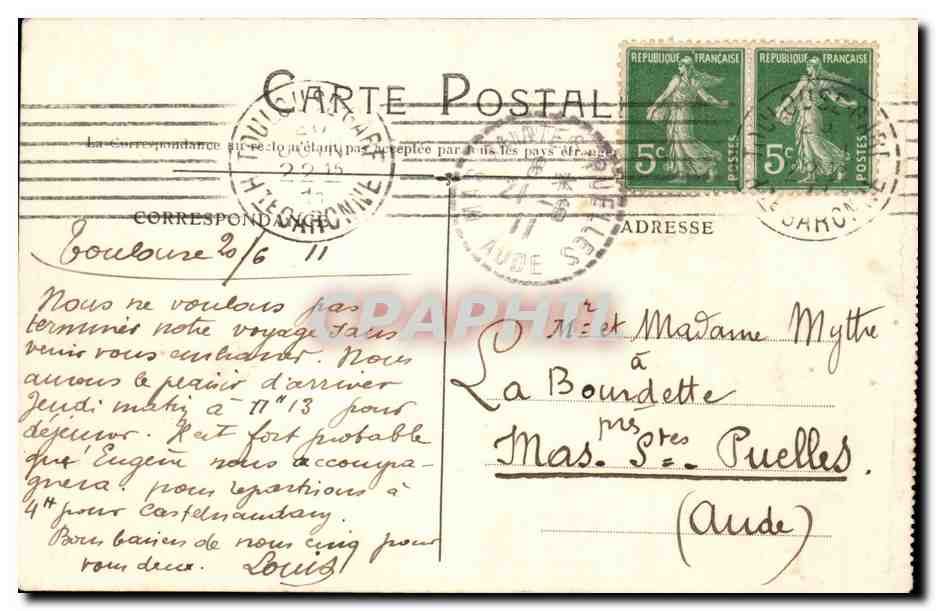 CARTE POSTALE
RÉPUBLIQUE FRANÇAISE
5c
POSTES
RÉPUBLIQUE FRANÇAISE
5c
POSTES
La Correspondance au recto n'étant pas acceptée par tous les pays étrangers
TOULOUSE-GARE
HTE GARONNE
MAS SAINTES PUELLES
AUDE
TOULOUSE-GARE
HTE GARONNE
CORRESPONDANCE
ADRESSE
Toulouse 20/6 11
Nous ne voulons pas
terminer notre voyage sans
venir vous embrasser. Nous
aurons le plaisir d'arriver
Jeudi matin à 11h 13 pour
déjeuner. Il est fort probable
que Eugène nous accompa-
gnera. nous repartirons à
4h pour Castelnaudary.
Bons baisers de nous cinq pour
vous deux. Louis
Mr et Madame Mythe
à
La Bourdette
près
Mas-Stes-Puelles.
(Aude)
CPAPHIL